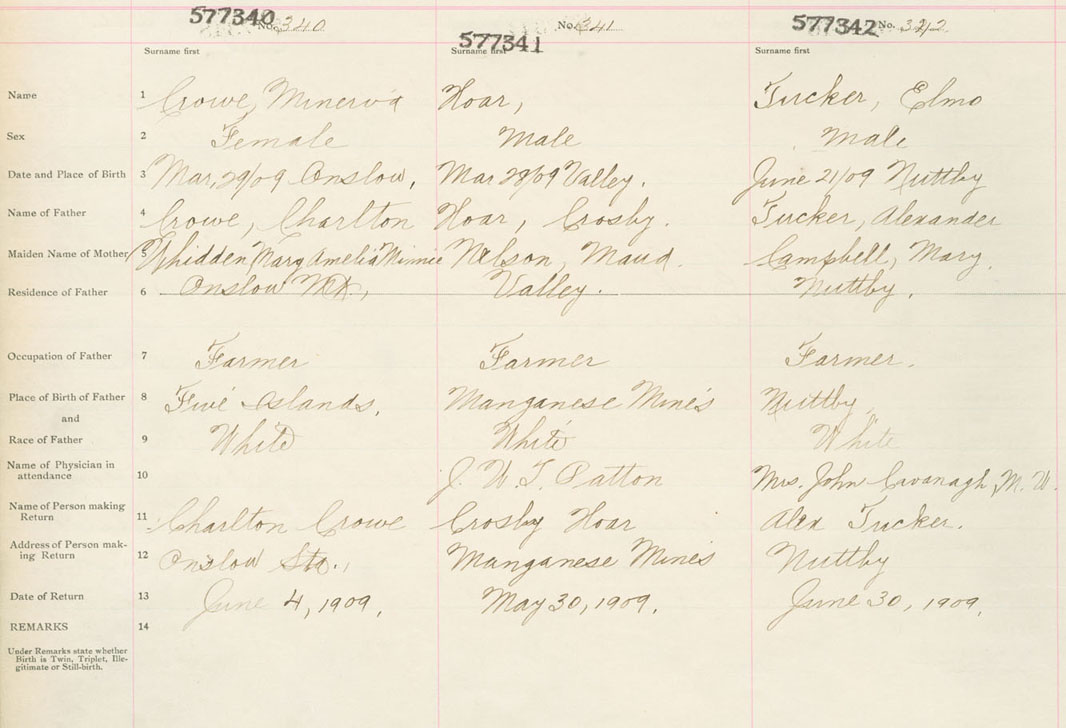 577340 No. 340 No. 341 577342 No. 342
577341
Surname first Surname first Surname first
Name 1 Crowe, Minerva Hoar, Tucker, Elmo
Sex 2 Female Male Male
Date and Place of Birth 3 Mar. 29/09 Onslow, Mar 28/09 Valley. June 21/09 Nuttby
Name of Father 4 Crowe, Charlton Hoar, Crosby. Tucker, Alexander
Maiden Name of Mother 5 Whidden, Mary Amelia Minnie Nelson, Maud. Campbell, Mary.
Residence of Father 6 Onslow Valley. Nuttby.
Occupation of Father 7 Farmer Farmer Farmer.
Place of Birth of Father 8 Five Islands, Manganese Mines Nuttby,
and
Race of Father 9 White White White
Name of Physician in
attendance 10 J. W. T. Patton Mrs. John Cavanagh, M. W.
Name of Person making
Return 11 Charlton Crowe Crosby Hoar Alex Tucker.
Address of Person mak-
ing Return 12 Onslow Sta., Manganese Mines Nuttby
Date of Return 13 June 4, 1909. May 30, 1909. June 30, 1909.
REMARKS 14
Under Remarks state whether
Birth is Twin, Triplet, Ille-
gitimate or Still-birth.